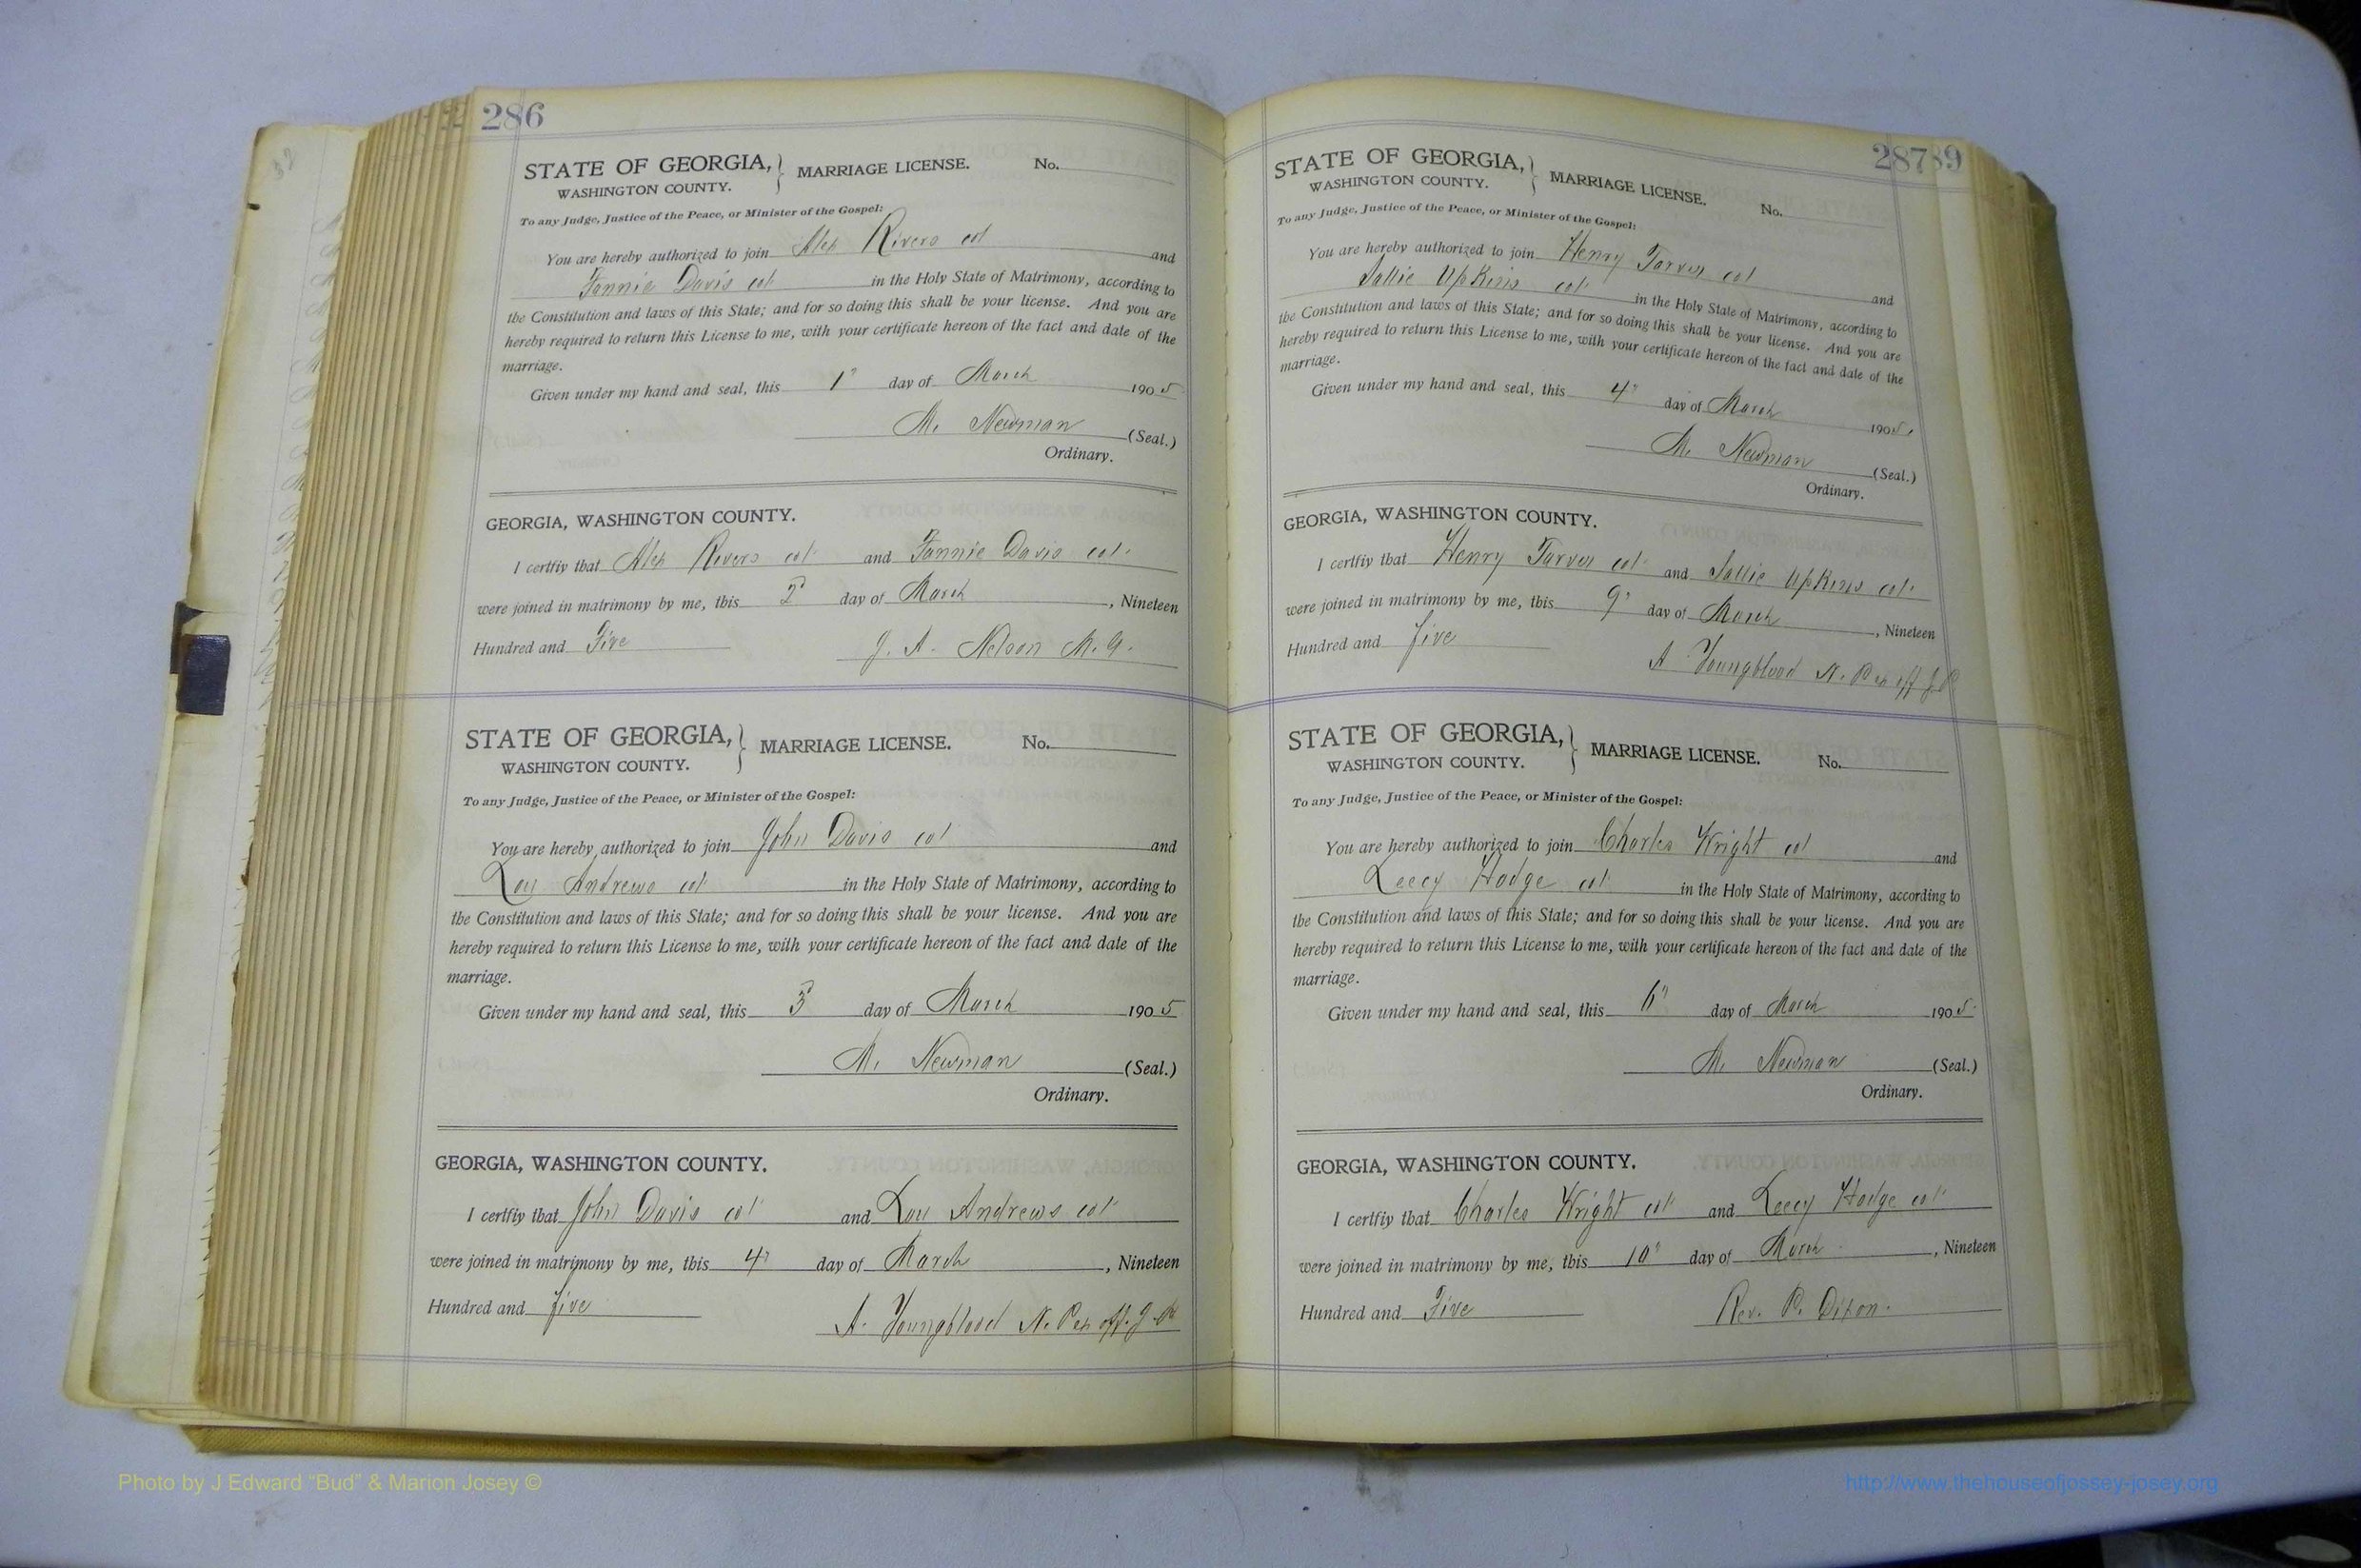 286
STATE OF GEORGIA, } MARRIAGE LICENSE. No.
WASHINGTON COUNTY.
To any Judge, Justice of the Peace, or Minister of the Gospel:
You are hereby authorized to join Alex Rivers col and
Fannie Davis col in the Holy State of Matrimony, according to
the Constitution and laws of this State; and for so doing this shall be your license. And you are
hereby required to return this License to me, with your certificate hereon of the fact and date of the
marriage.
Given under my hand and seal, this 1" day of March 1905
M. Newman (Seal.)
Ordinary.
GEORGIA, WASHINGTON COUNTY.
I certfiy that Alex Rivers col and Fannie Davis col
were joined in matrimony by me, this 2" day of March, Nineteen
Hundred and Five J. A. Nelson M. G.
STATE OF GEORGIA, } MARRIAGE LICENSE. No.
WASHINGTON COUNTY.
To any Judge, Justice of the Peace, or Minister of the Gospel:
You are hereby authorized to join John Davis col and
Lou Andrews col in the Holy State of Matrimony, according to
the Constitution and laws of this State; and for so doing this shall be your license. And you are
hereby required to return this License to me, with your certificate hereon of the fact and date of the
marriage.
Given under my hand and seal, this 3" day of March 1905
M. Newman (Seal.)
Ordinary.
GEORGIA, WASHINGTON COUNTY.
I certfiy that John Davis col and Lou Andrews col
were joined in matrimony by me, this 4" day of March, Nineteen
Hundred and five A. Youngblood N. P. ex off. J. P.
28789
STATE OF GEORGIA, } MARRIAGE LICENSE. No.
WASHINGTON COUNTY.
To any Judge, Justice of the Peace, or Minister of the Gospel:
You are hereby authorized to join Henry Tarver col and
Sallie UpKins col in the Holy State of Matrimony, according to
the Constitution and laws of this State; and for so doing this shall be your license. And you are
hereby required to return this License to me, with your certificate hereon of the fact and date of the
marriage.
Given under my hand and seal, this 4" day of March 1905.
M. Newman (Seal.)
Ordinary.
GEORGIA, WASHINGTON COUNTY.
I certfiy that Henry Tarver col and Sallie UpKins col
were joined in matrimony by me, this 9" day of March, Nineteen
Hundred and five A Youngblood N. P. ex off J P
STATE OF GEORGIA, } MARRIAGE LICENSE. No.
WASHINGTON COUNTY.
To any Judge, Justice of the Peace, or Minister of the Gospel:
You are hereby authorized to join Charles Wright col and
Leecy Hodge col in the Holy State of Matrimony, according to
the Constitution and laws of this State; and for so doing this shall be your license. And you are
hereby required to return this License to me, with your certificate hereon of the fact and date of the
marriage.
Given under my hand and seal, this 6" day of March 1905
M. Newman (Seal.)
Ordinary.
GEORGIA, WASHINGTON COUNTY.
I certfiy that Charles Wright col and Leecy Hodge col
were joined in matrimony by me, this 10" day of March, Nineteen
Hundred and Five Rev. P. Dixon.
Photo by J Edward “Bud” & Marion Josey ©
http://www.thehouseofjossey-josey.org